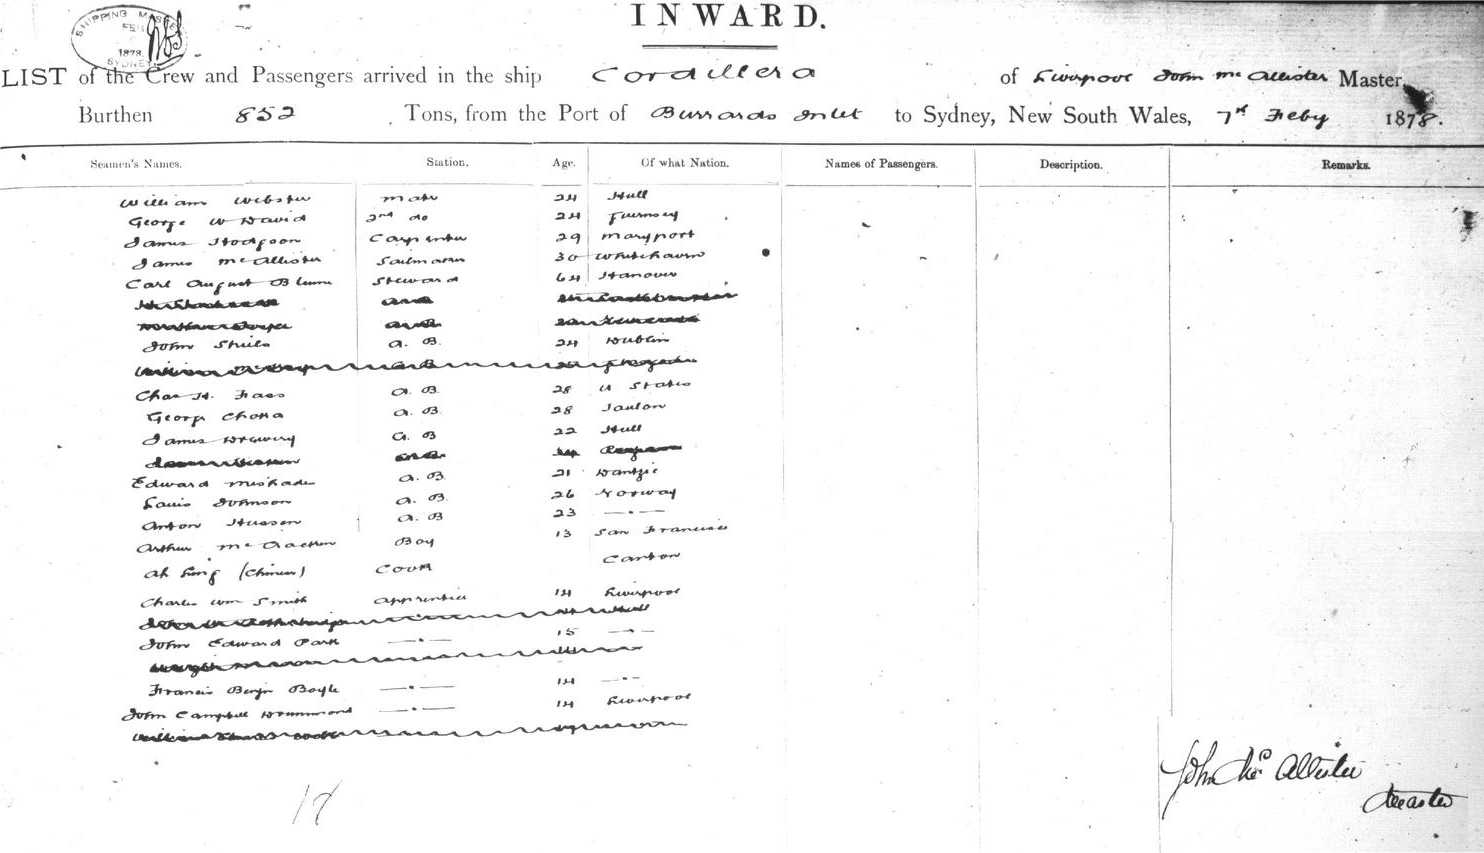 SHIPPING MASTER
FEB
1878
SYDNEY
INWARD.
LIST of the Crew and Passengers arrived in the ship Cordillera of Liverpool John McAllister Master,
Burthen 852 Tons, from the Port of Burrards Inlet to Sydney, New South Wales, 7th Feby 1878.
Seamen's Names. Station. Age. Of what Nation. Names of Passengers. Description. Remarks.
William Webster Mate 24 Hull
George W David 2nd do 24 Guernsey
James Hodgson Carpenter 29 Maryport
James McAllister Sailmaker 30 Whitehaven
Carl August Blume Steward 64 Hanover
John Shiels A.B. 24 Dublin
Chas H. A.B. 28 U States
George A.B. 28
James Drewery A.B 22 Hull
Edward A.B. 21 Dantzic
Louis Johnson A.B. 26 Norway
Anton A.B 23 — " —
Arthur McCracken Boy 13 San Francisco
Ah (Chinese) Cook Canton
Charles Wm Smith Apprentice 14 Liverpool
John Edward Park — " — 15 — " —
Francis Benjn Boyle — " — 14 — " —
John Campbell Drummond — " — 14 Liverpool
John McAllister
Master